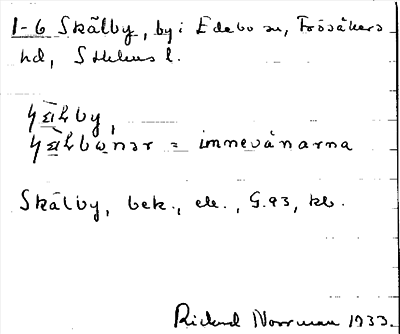 1-6 Skälby, by i Edebo sn, Frösåkers
hd, Sthlms l.
by,
= innevånarna
Skälby, bek., ele., G.93, kb.
Rickard Norrman 1933.